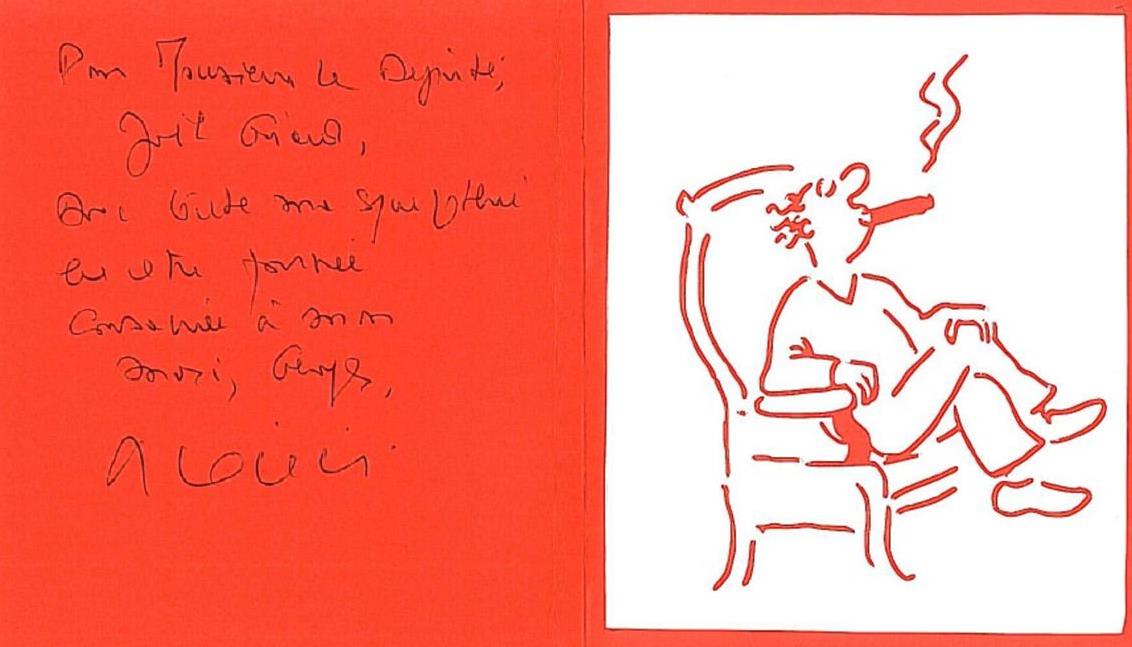 Pour Monsieur le Député,
Joël Giraud,
avec toute ma sympathie
en cette journée
consacrée à mon
mari, Georges,